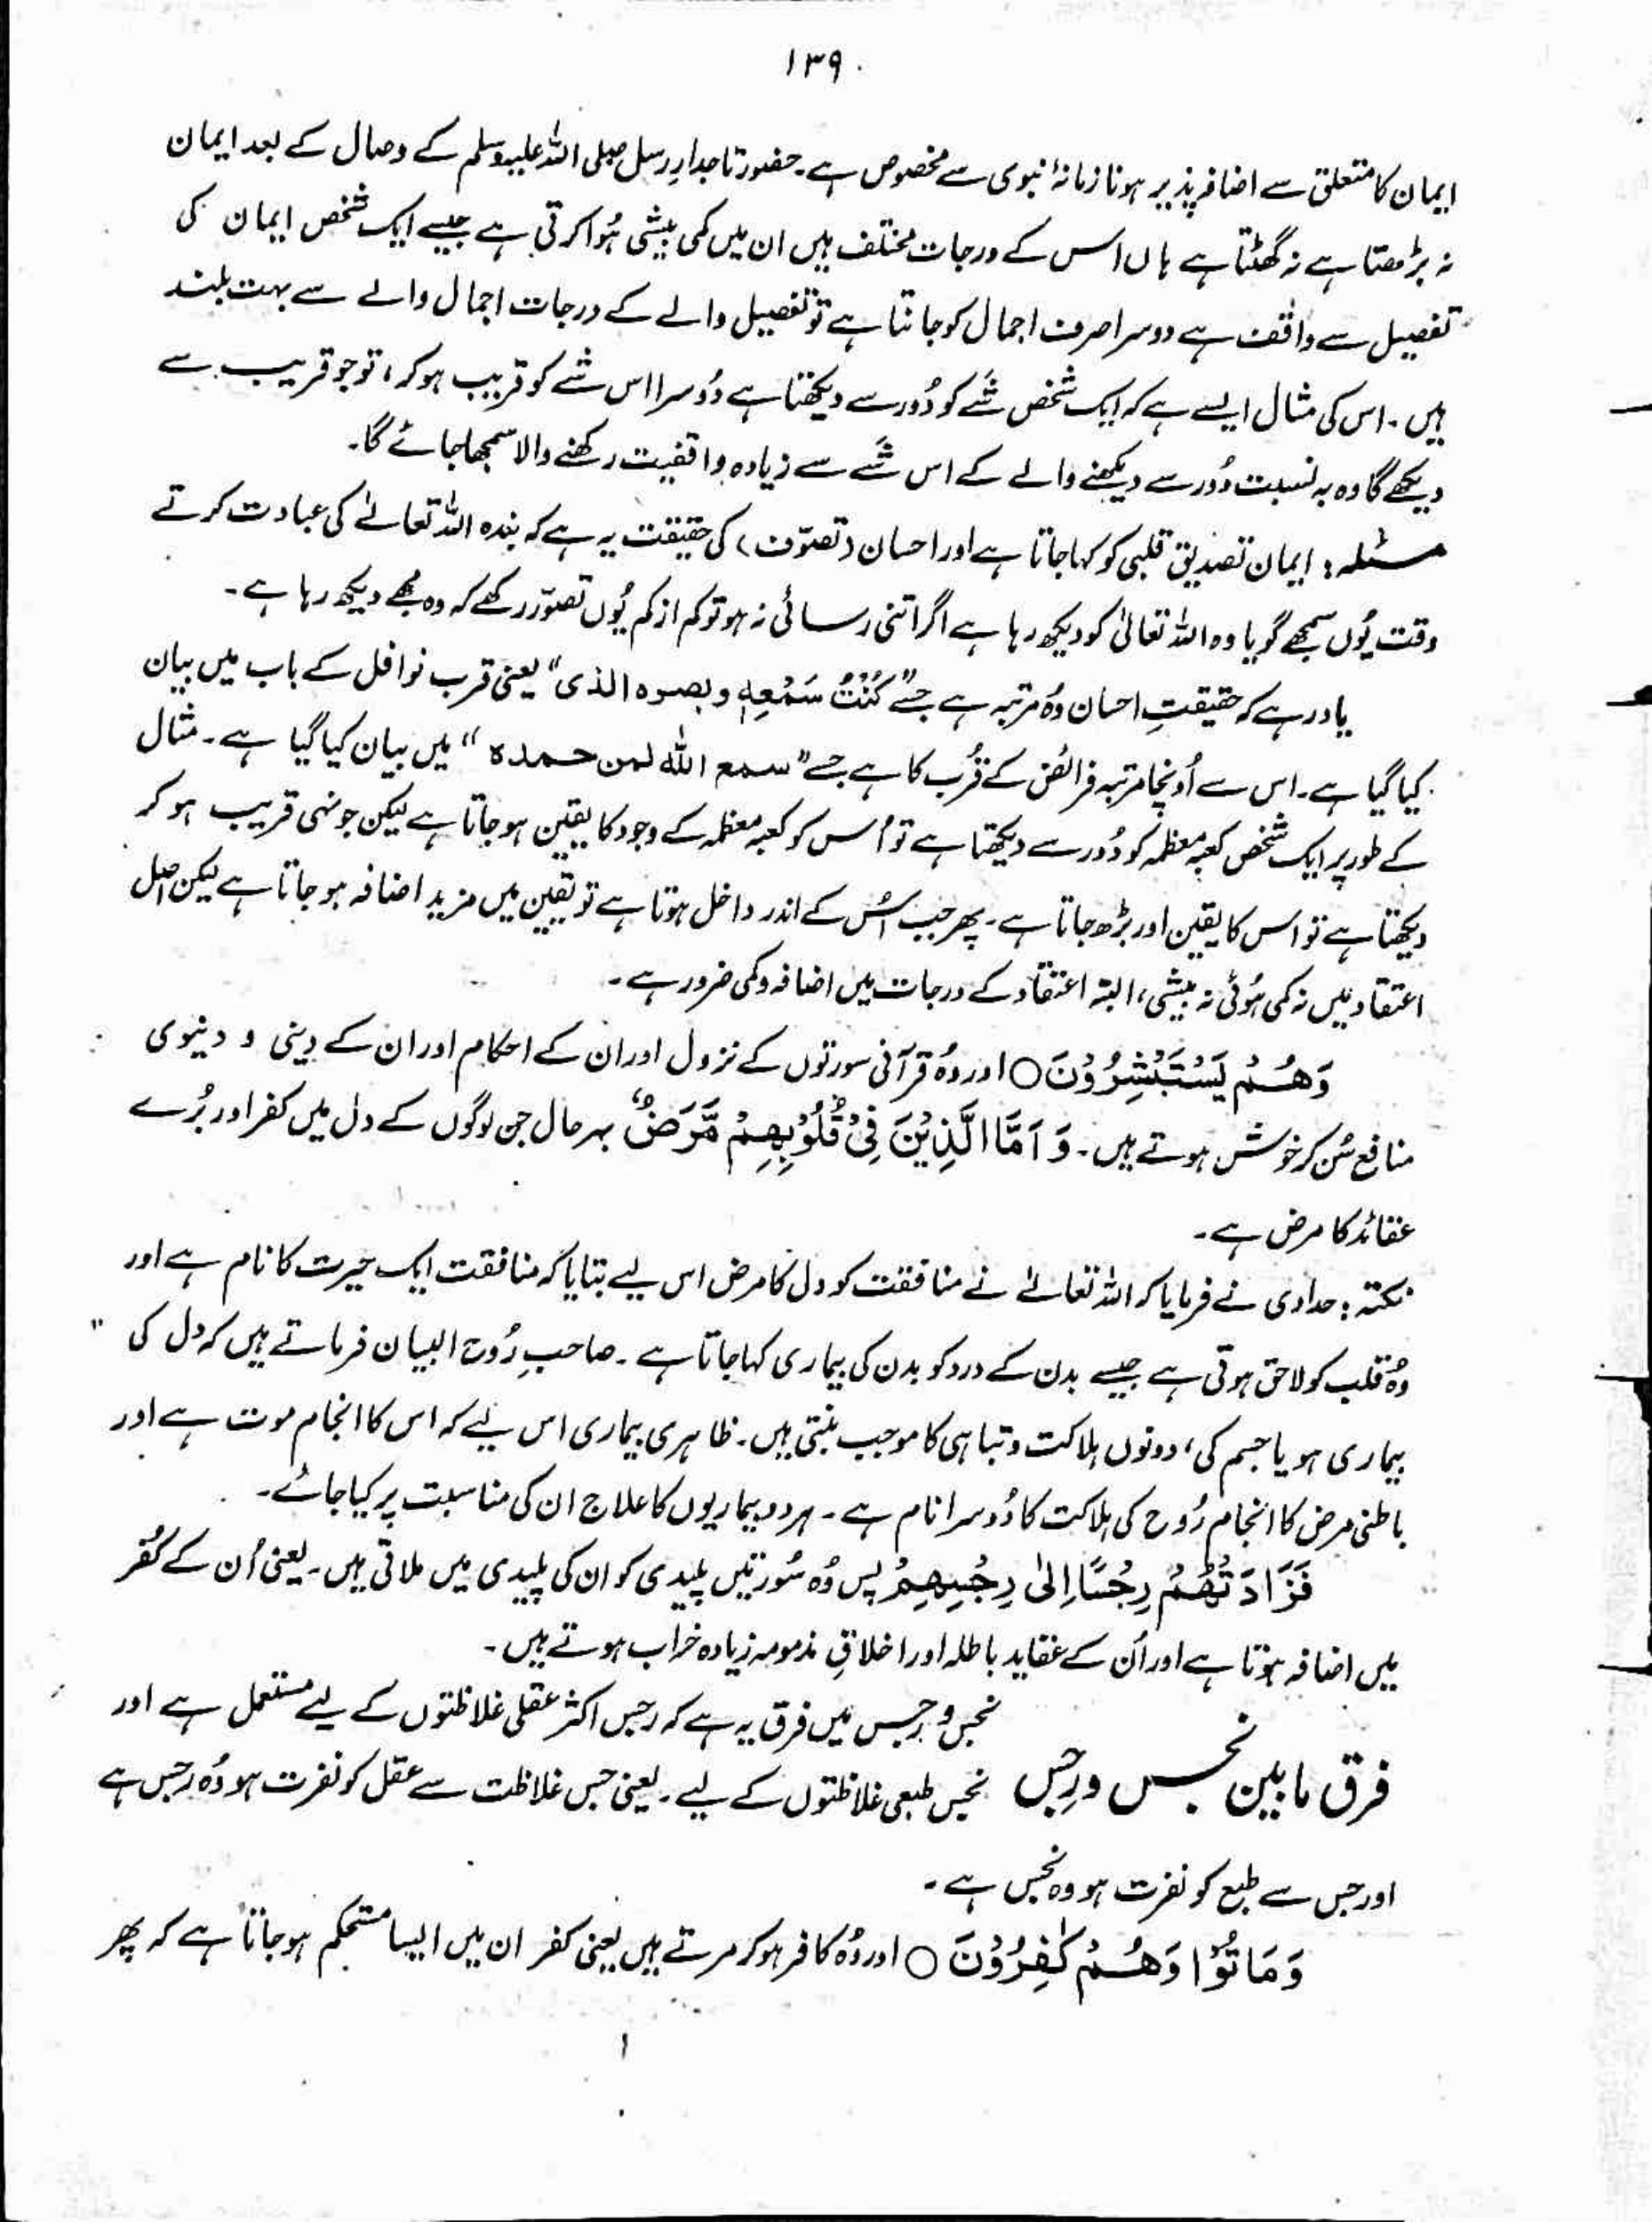 ۱۳۹
ایمان کا متعلق سے اضافہ پذیر ہونا زمانۂ نبوی سے مخصوص ہے۔ حضور تاجدارِ رسل صلی اللہ علیہ وسلم کے وصال کے بعد ایمان
نہ بڑھتا ہے نہ گھٹتا ہے ہاں اس کے درجات مختلف ہیں ان میں کمی بیشی ہُوا کرتی ہے جیسے ایک شخص ایمان کی
تفصیل سے واقف ہے دوسرا صرف اجمال کو جانتا ہے تو تفصیل والے کے درجات اجمال والے سے بہت بلند
ہیں۔ اس کی مثال ایسے ہے کہ ایک شخص شَے کو دُور سے دیکھتا ہے دُوسرا اس شے کو قریب ہو کر، تو جو قریب سے
دیکھے گا وہ بہ نسبت دُور سے دیکھنے والے کے اس شَے سے زیادہ واقفیت رکھنے والا سمجھا جائے گا۔
مسئلہ : ایمان تصدیق قلبی کو کہا جاتا ہے اور احسان (تصوّف) کی حقیقت یہ ہے کہ بندہ اللہ تعالےٰ کی عبادت کرتے
وقت یُوں سمجھے گویا وہ اللہ تعالیٰ کو دیکھ رہا ہے اگر اتنی رسائی نہ ہو تو کم از کم یُوں تصوّر رکھے کہ وہ مجھے دیکھ رہا ہے۔
یاد رہے کہ حقیقتِ احسان وُہ مرتبہ ہے جسے ”كُنْتُ سَمْعِهٖ وبصره الذی“ یعنی قرب نوافل کے باب میں بیان
کیا گیا ہے۔ اس سے اُونچا مرتبہ فرائض کے قُرب کا ہے جسے ”سمع الله لمن حمده“ میں بیان کیا گیا ہے۔ مثال
کے طور پر ایک شخص کعبہ معظمہ کو دُور سے دیکھتا ہے تو اُس کو کعبہ معظمہ کے وجود کا یقین ہو جاتا ہے لیکن جونہی قریب ہو کر
دیکھتا ہے تو اس کا یقین اور بڑھ جاتا ہے۔ پھر جب اُس کے اندر داخل ہوتا ہے تو یقین میں مزید اضافہ ہو جاتا ہے لیکن اصل
اعتقاد میں نہ کمی ہُوئی نہ بیشی، البتہ اعتقاد کے درجات میں اضافہ و کمی ضرور ہے۔
وَهُمْ يَسْتَبْشِرُوْنَ ○ اور وُہ قرآنی سورتوں کے نزول اور ان کے احکام اور ان کے دینی و دنیوی
منافع سُن کر خوش ہوتے ہیں۔ وَ اَمَّا الَّذِيْنَ فِيْ قُلُوْبِهِمْ مَّرَضٌ بہرحال جن لوگوں کے دل میں کفر اور بُرے
عقائد کا مرض ہے۔
نکتہ : حدادی نے فرمایا کہ اللہ تعالےٰ نے منافقت کو دل کا مرض اس لیے بتایا کہ منافقت ایک حیرت کا نام ہے اور
وُہ قلب کو لاحق ہوتی ہے جیسے بدن کے درد کو بدن کی بیماری کہا جاتا ہے۔ صاحبِ رُوح البیان فرماتے ہیں کہ دل کی
بیماری ہو یا جسم کی، دونوں ہلاکت و تباہی کا موجب بنتی ہیں۔ ظاہری بیماری اس لیے کہ اس کا انجام موت ہے اور
باطنی مرض کا انجام رُوح کی ہلاکت کا دُوسرا نام ہے۔ ہر دو بیماریوں کا علاج ان کی مناسبت پر کیا جائے۔
فَزَادَتْهُمْ رِجْسًا اِلىٰ رِجْسِهِمْ پس وُہ سُورتیں پلیدی کو ان کی پلیدی میں ملاتی ہیں۔ یعنی اُن کے کُفر
میں اضافہ ہوتا ہے اور اُن کے عقاید باطلہ اور اخلاقِ مذمومہ زیادہ خراب ہوتے ہیں۔
نجس و رجس میں فرق یہ ہے کہ رجس اکثر عقلی غلاظتوں کے لیے مستعمل ہے اور
فرق مابین نجس و رجس نجس طبعی غلاظتوں کے لیے۔ یعنی جس غلاظت سے عقل کو نفرت ہو وُہ رجس ہے
اور جس سے طبع کو نفرت ہو وہ نجس ہے۔
وَمَاتُوْا وَهُمْ كٰفِرُوْنَ ○ اور وُہ کافر ہو کر مرتے ہیں یعنی کفر ان میں ایسا مستحکم ہو جاتا ہے کہ پھر